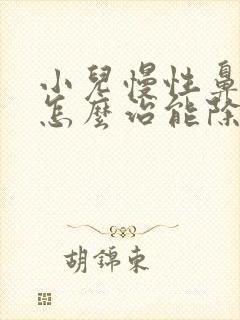 小兒慢性鼻
怎麼治能除
胡錦東